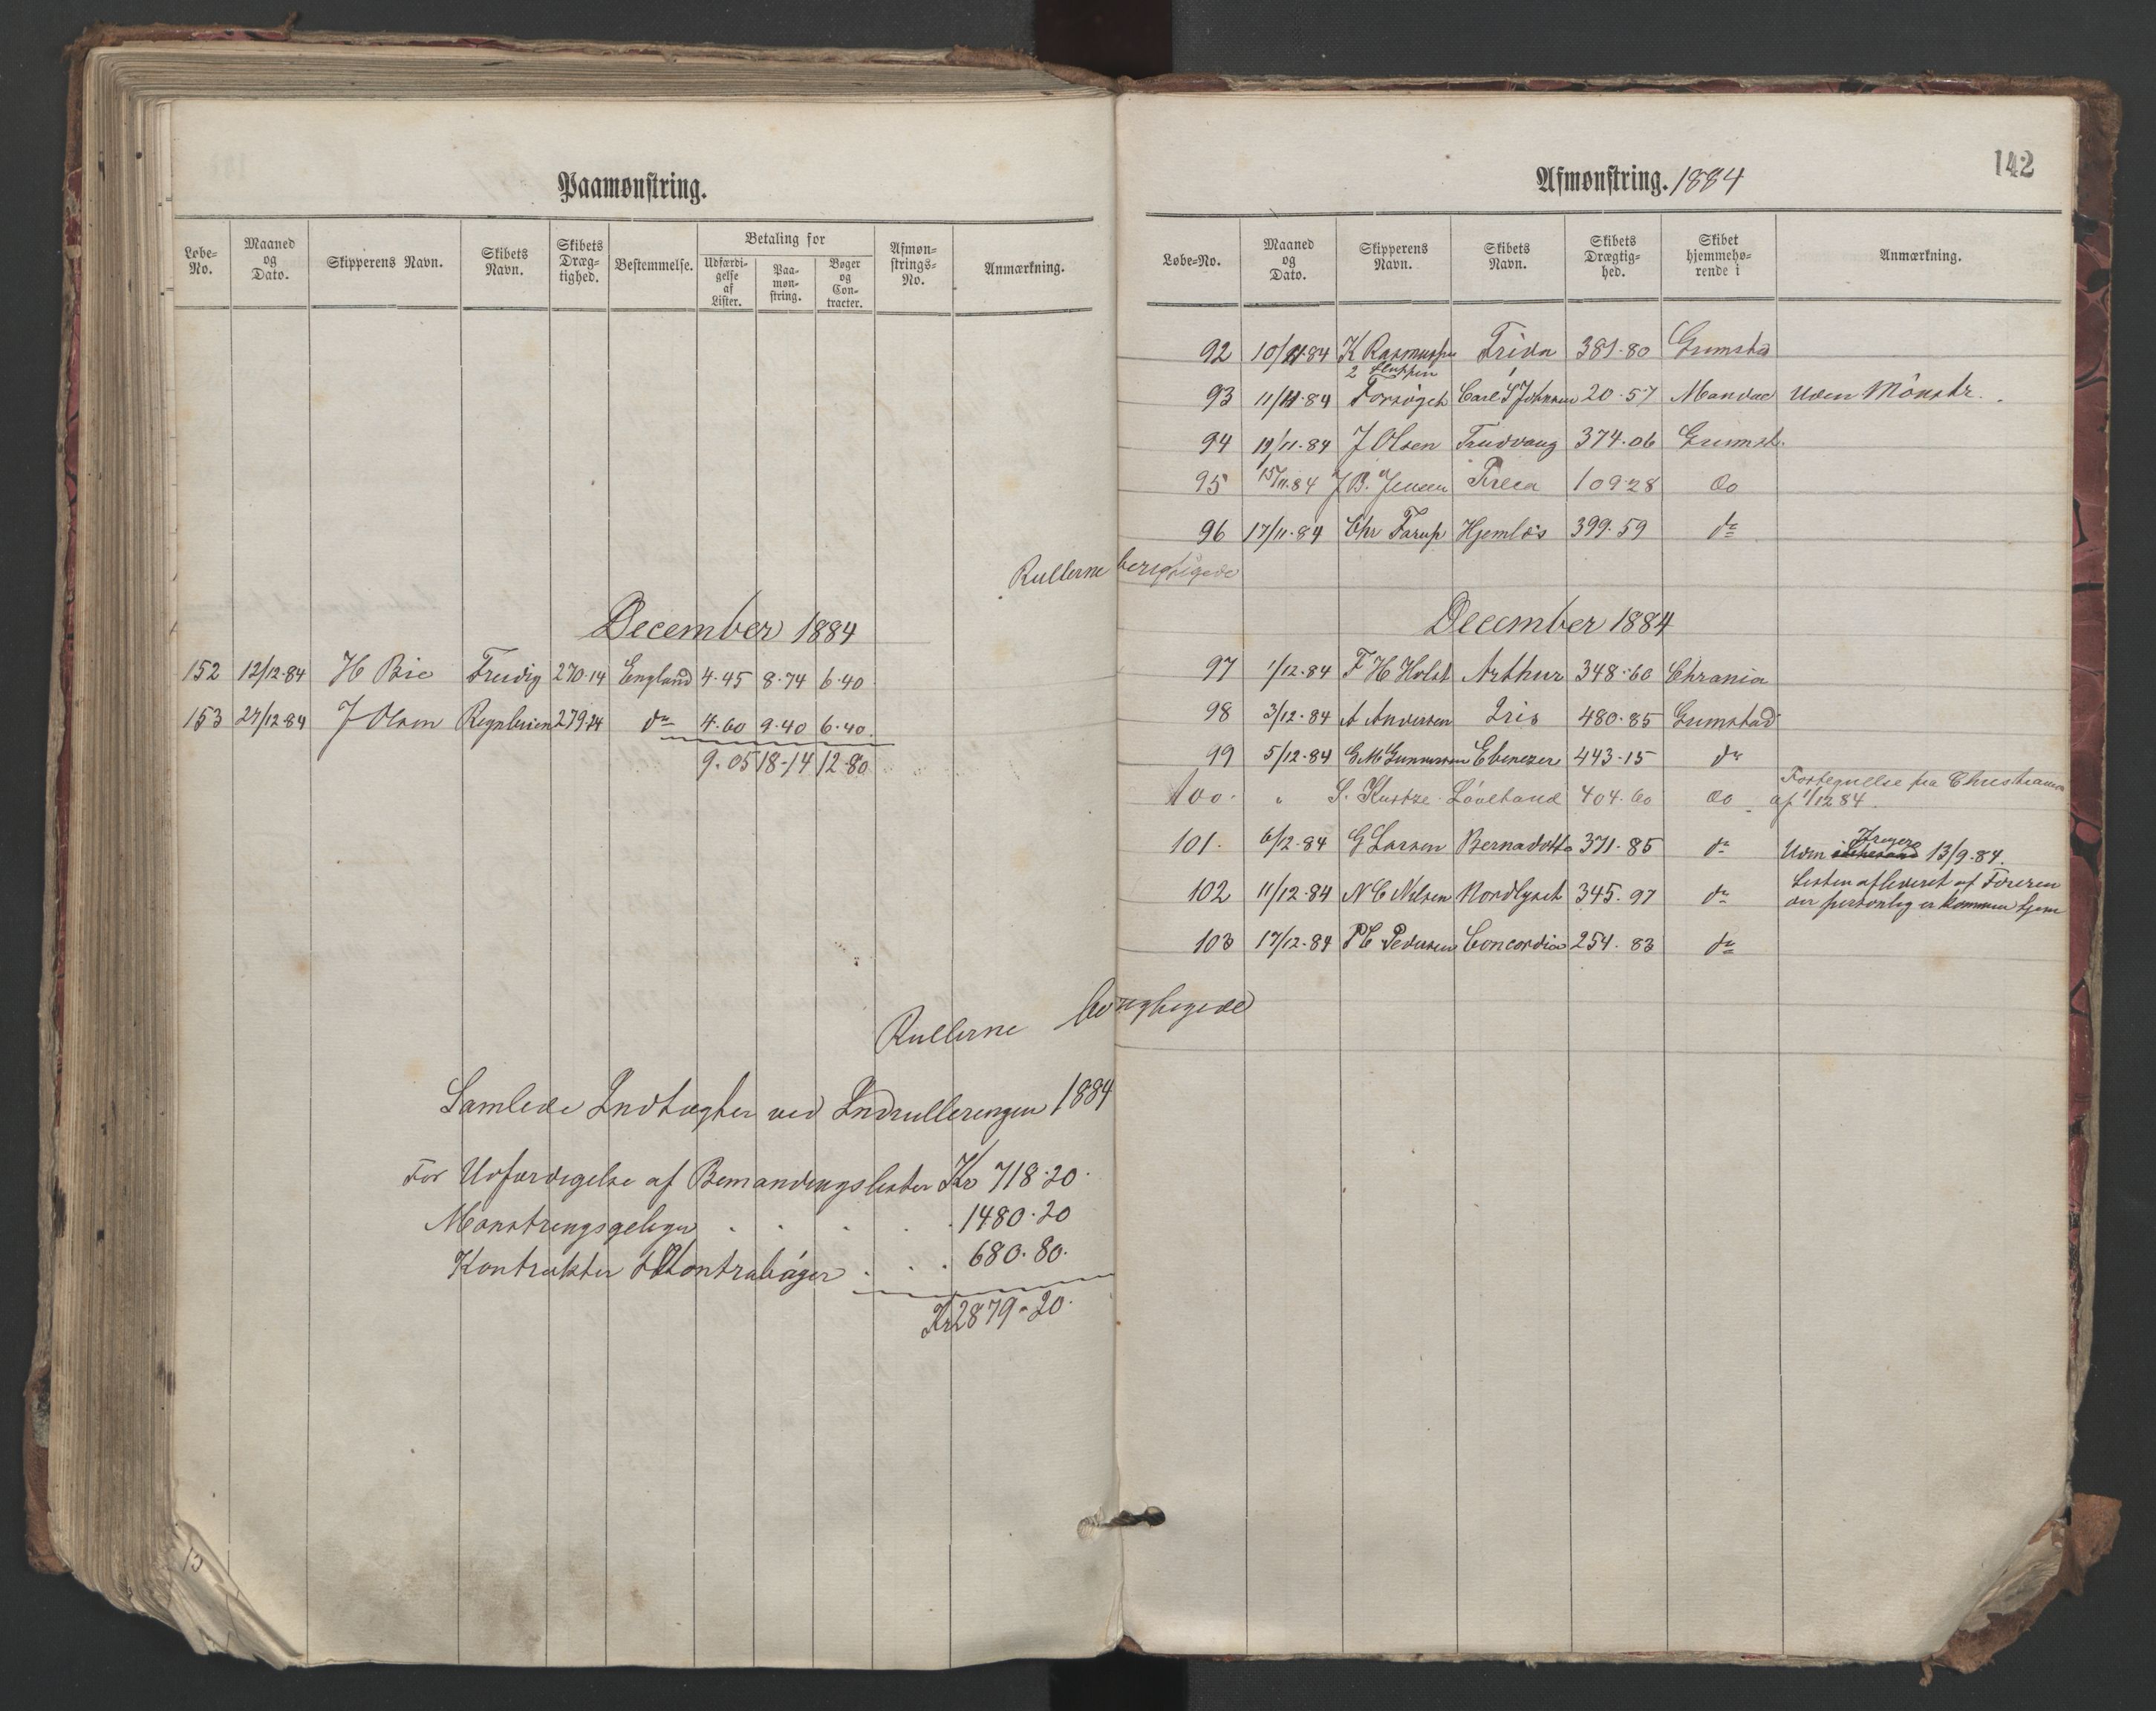 Paamønstring.
Løbe-No. Maaned og Dato. Skipperens Navn. Skibets Navn. Skibets Dræg-tighed. Bestemmelse. Betaling for Udfærdi-gelse af Lister. Paa-møn-string. Bøger og Con-tracter. Afmøn-strings-No. Anmærkning.
December 1884
152 12/12·84 H Bie Freidig 270·14 England 4·45 8·74 6·40
153 27/12·84 J Olsen 279·24 do 4·60 9·40 6·40
9·05 18·14 12·80
Samlede Indtægter ved Indrulleringen 1884
For Udfærdigelse af Bemandingslister Kr 718·20
Mønstringsgebyr 1480·20
Kontrakter & Kontrabøger 680·80
Kr 2879·20
142
Afmønstring. 1884
Løbe-No. Maaned og Dato. Skipperens Navn. Skibets Navn. Skibets Drægtig-hed. Skibet hjemmehø-rende i Anmærkning.
92 10/11·84 K Rasmussen Frida 381·80 Grimstad
93 11/11·84 Forsøget Carl S Johnsen 20·57 Mandal Uden Mønstr.
94 12/11·84 J Olsen Trudvang 374·06 Grimst.
95 15/11·84 J B. Jensen 109·28 do
96 17/11·84 Chr Tarup Hjemløs 399·59 do
Rullerne berigtigede
December 1884
97 1/12·84 F H Holst Arthur 348·60 Chrania
98 3/12·84 A Andersen Iris 480·85 Grimstad
99 5/12·84 G M Gunnersen Ebenezer 443·15 do
100 " S. Løvetand 404·60 do Fortegnelse fra Christiania
af 1/12 84.
101 6/12·84 G Larsen Bernadotte 371·85 do Uden 13/9·84.
102 11/12·84 N C Nilsen Nordlyset 345·97 do Listen afleveret af Føreren
der personlig er kommen hjem
103 17/12·84 P C Pedersen Concordia 254·83 do
Rullerne berigtigede